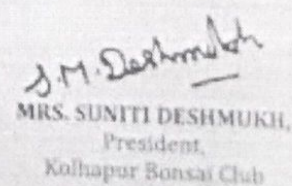 S.M. Deshmukh
MRS. SUNITI DESHMUKH,
President,
Kolhapur Bonsai Club